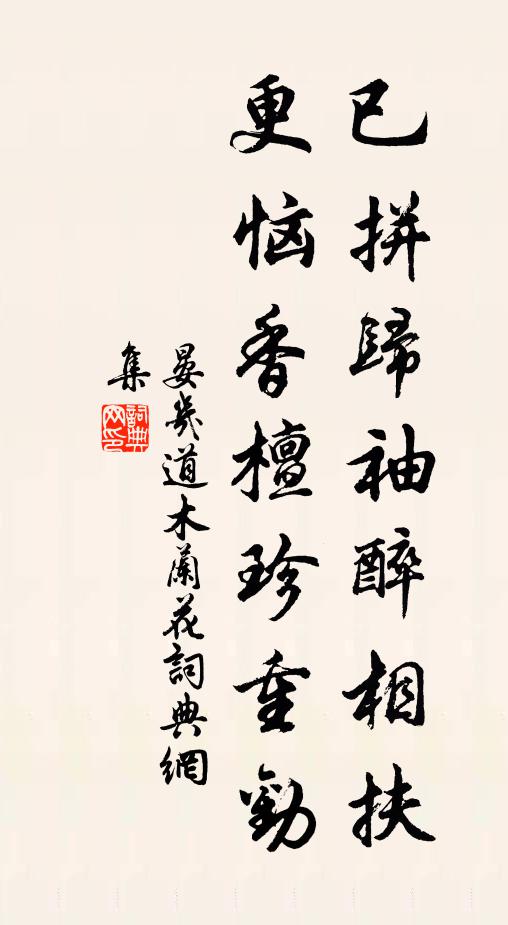 已拼歸袖醉相扶
更惱香檀珍重勸
晏幾道木蘭花詞典網
集
詞典
网印